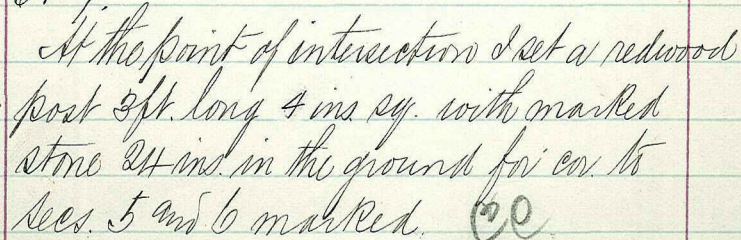 At the point of intersection I set a redwood
post 3 ft. long 4 ins. sq. with marked
stone 24 ins. in the ground for cor. to
secs. 5 and 6 marked.